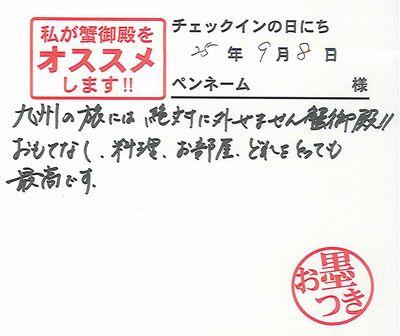 私が蟹御殿を
オススメ
します!!
チェックインの日にち
25年9月8日
ペンネーム 様
九州の旅には、絶対に外せません蟹御殿!!
おもてなし、料理、お部屋、どれをとっても
最高です。
お墨つき